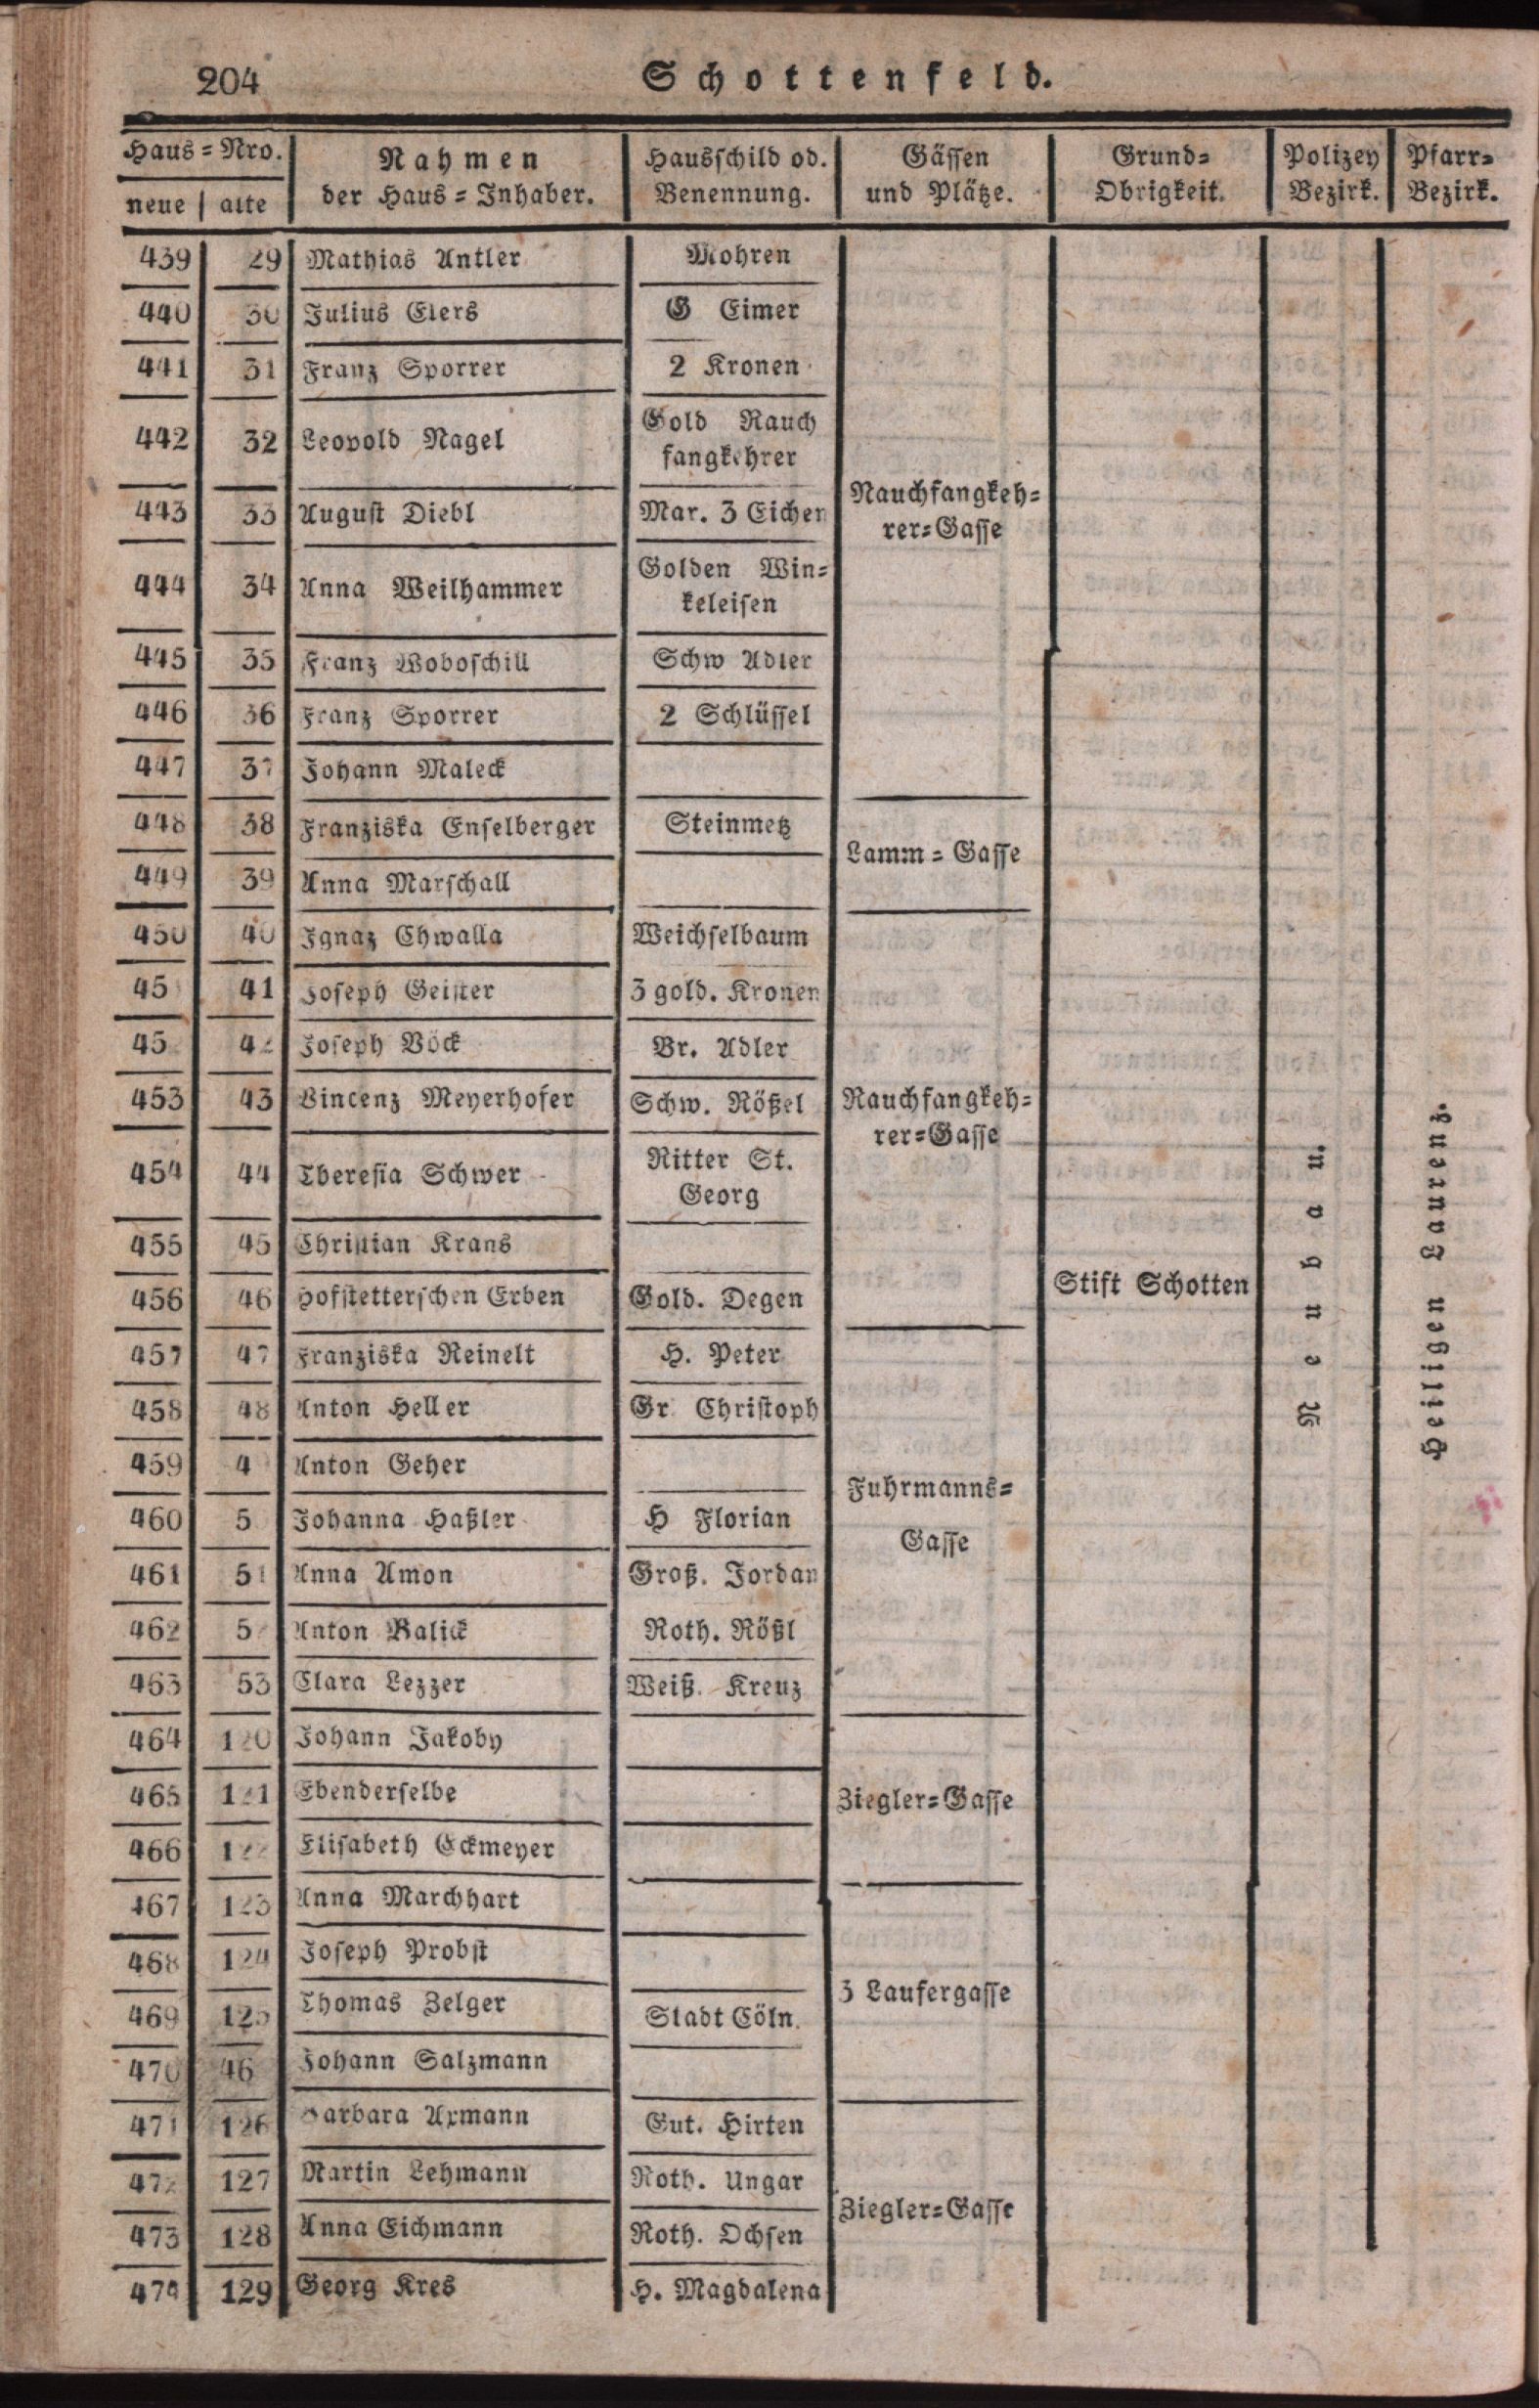 204 Schottenfeld.
Haus=Nro. Nahmen Hausschild od. Gässen Grund= Polizey Pfarr=
neue alte der Haus=Inhaber. Benennung. und Plätze. Obrigkeit. Bezirk. Bezirk.
439 29 Mathias Antler Mohren
440 30 Julius Eiers G Eimer
441 31 Franz Sporrer 2 Kronen
442 32 Leopold Nagel Gold Rauch
fangkehrer
Rauchfangkeh=
rer=Gasse
443 33 August Diebl Mar. 3 Eichen
444 34 Anna Weilhammer Golden Win=
keleisen
445 35 Franz Woboschill Schw Adler
446 36 Franz Sporrer 2 Schlüssel
447 37 Johann Maleck
448 38 Franziska Enselberger Steinmetz
Lamm=Gasse
449 39 Anna Marschall
450 40 Ignaz Chwalla Weichselbaum
45 41 Joseph Geister 3 gold. Kronen
45 42 Joseph Böck Br. Adler
453 43 Vincenz Meyerhofer Schw. Rößel Rauchfangkeh=
rer=Gasse
454 44 Theresia Schwer Ritter St.
Georg
455 45 Christian Krans
456 46 Hofstetterschen Erben Gold. Degen Stift Schotten
Neubau.
Heiligen Laurenz.
457 47 Franziska Reinelt H. Peter
458 48 Anton Heller Gr. Christoph
459 4 Anton Geher
Fuhrmanns=
460 5 Johanna Haßler H Florian
Gasse
461 51 Anna Amon Groß. Jordan
462 5 Anton Balick Roth. Rößl
463 53 Clara Lezzer Weiß. Kreuz
464 120 Johann Jakoby
465 121 Ebenderselbe Ziegler=Gasse
466 122 Elisabeth Eckmeyer
467 123 Anna Marchhart
468 124 Joseph Probst
3 Laufergasse
469 125 Thomas Zelger Stadt Cöln.
470 46 Johann Salzmann
471 126 Barbara Axmann Gut. Hirten
472 127 Martin Lehmann Roth. Ungar
Ziegler=Gasse
473 128 Anna Eichmann Roth. Ochsen
474 129 Georg Kres H. Magdalena